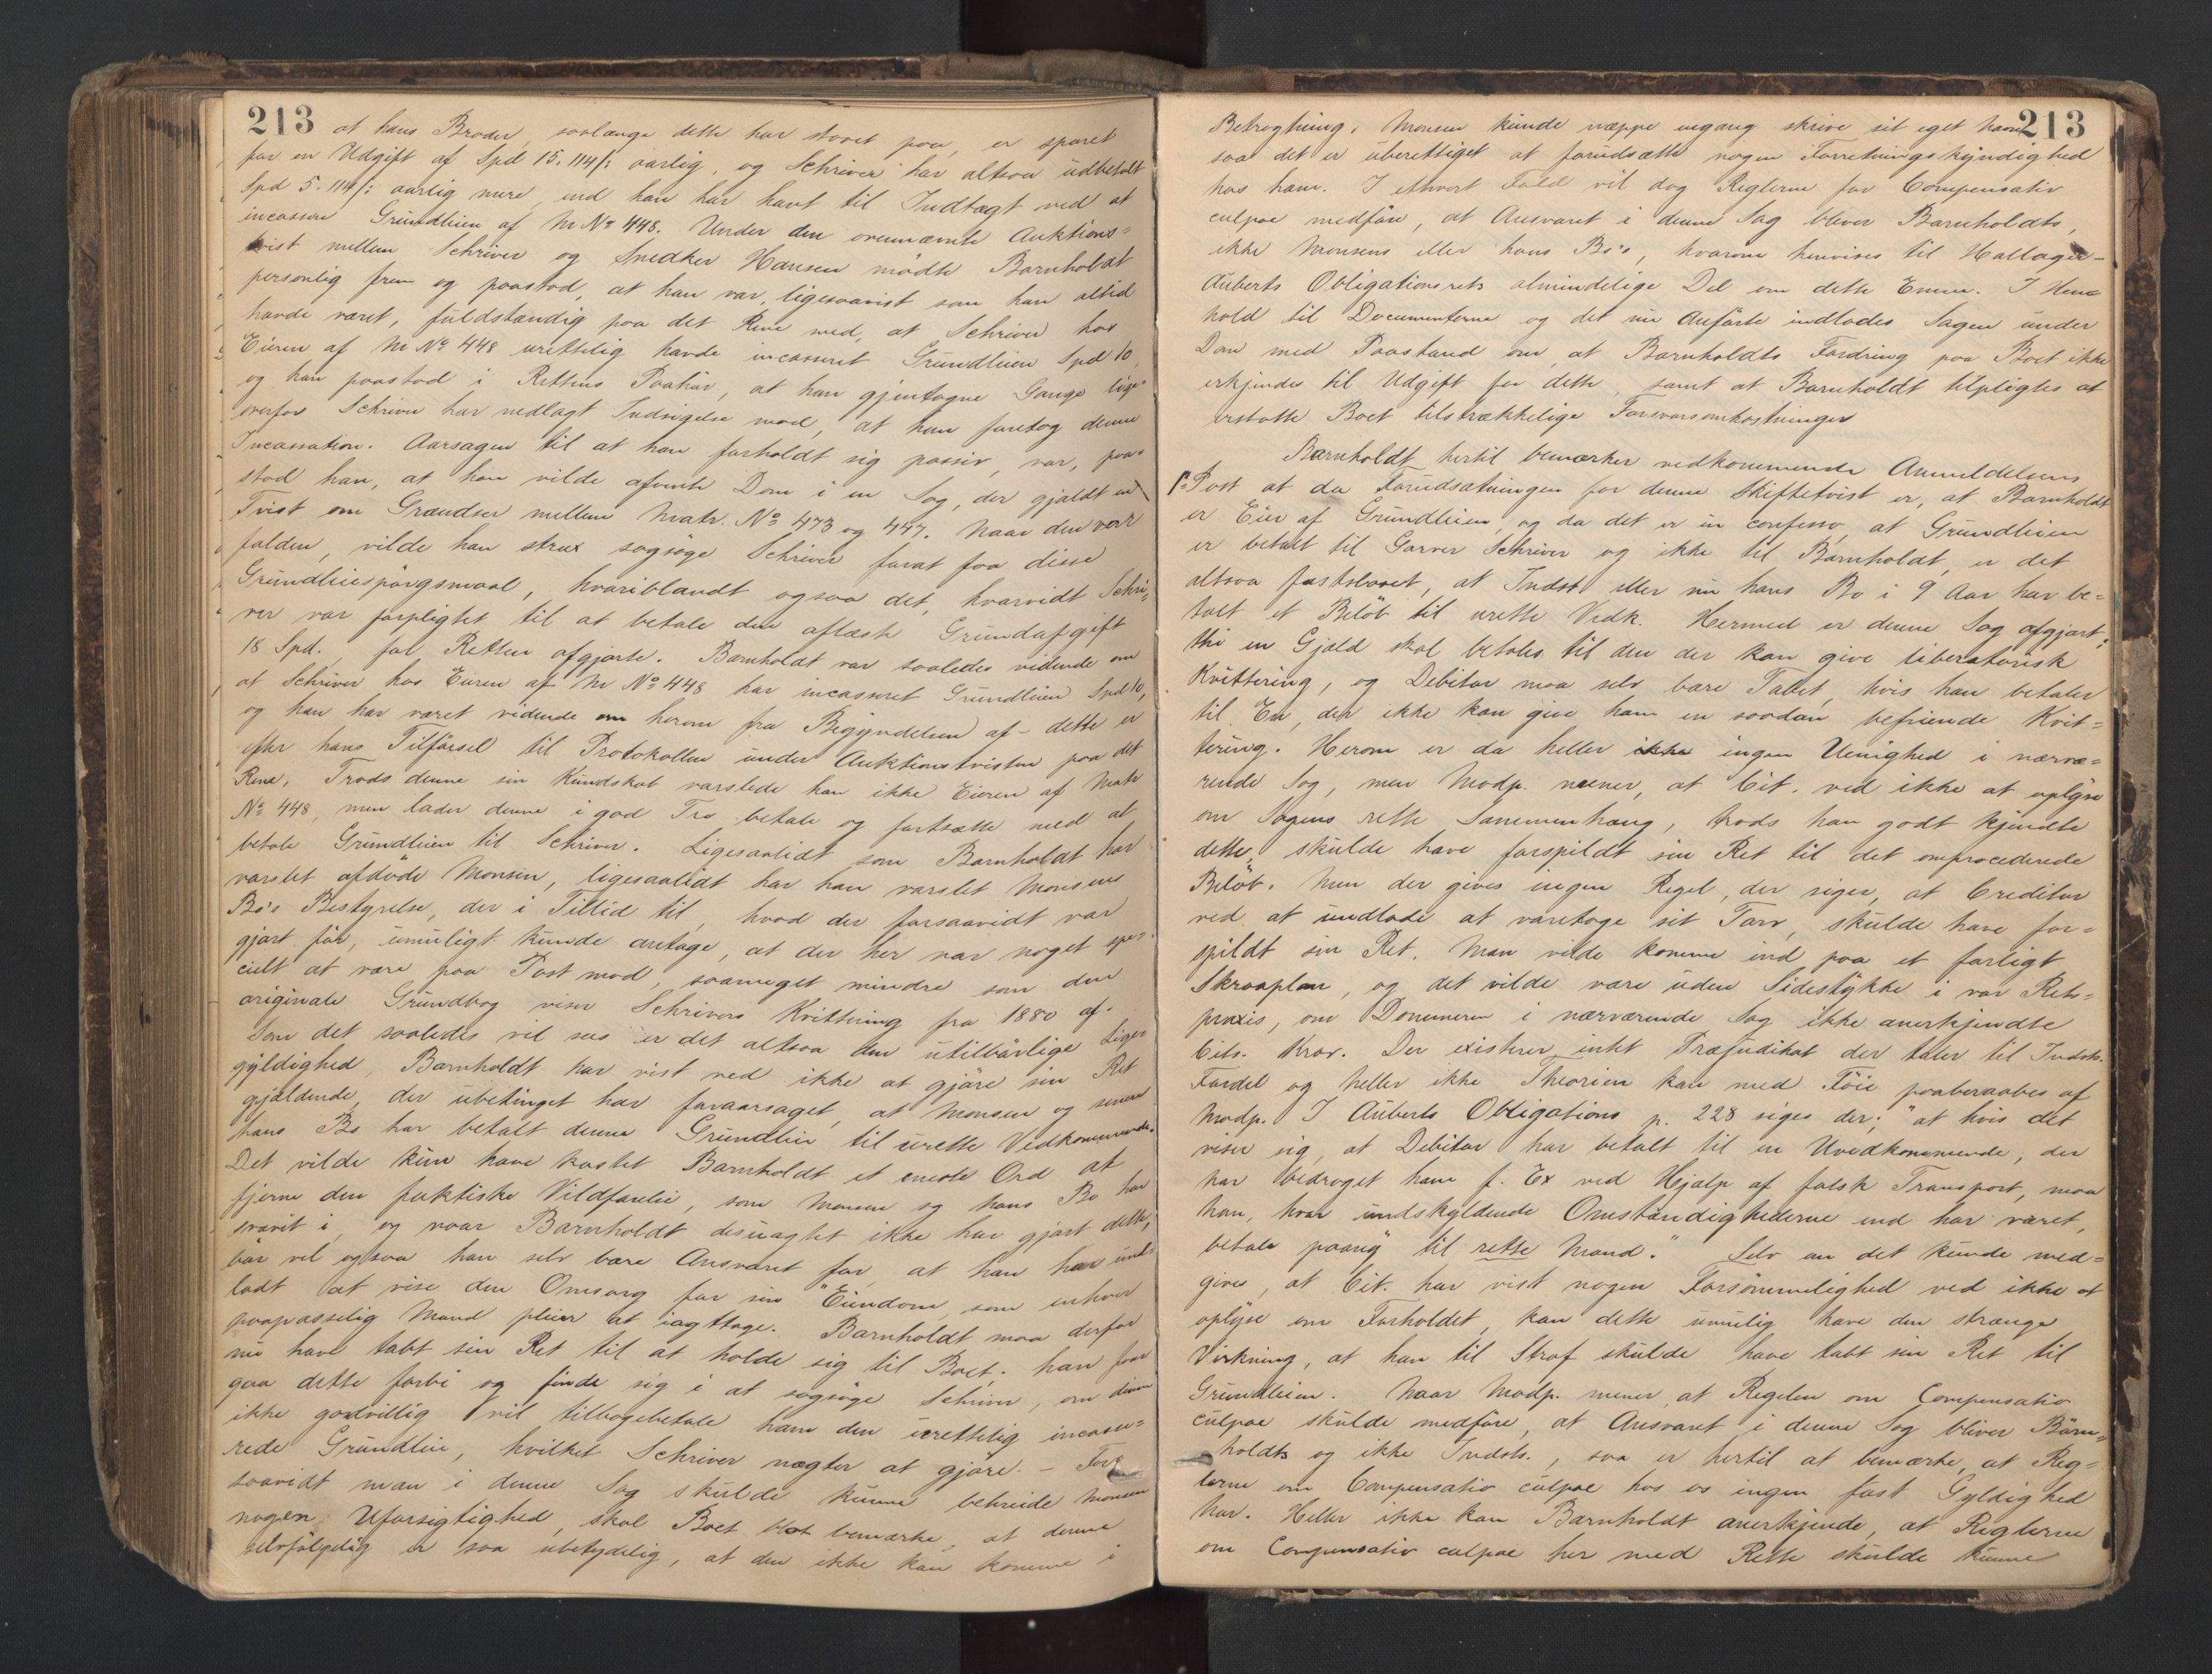 213
at hans Broder, saalænge dette har staaet paa, er sparet
for en Udgift af Spd 15. 114/: aarlig, og Schriver har altsaa udbetalt
Spd 5. 114/: aarlig mere, end han har havt til Indtægt ved at
incassere Grundleien af M No 448. Under den ovennævnte Auktions-
tvist mellem Schriver og Snedker Hansen mødte Barnholdt
personlig frem og paastod, at han var, ligesaavist som han altid
havde været, fuldstændig paa det Rene med, at Schriver hos
Eieren af M No 448 urettelig havde incasseret Grundleien Spd 10,
og han paastod i Rettens Paahør, at han gjentagne Gange lige-
overfor Schriver har nedlagt Indsigelse mod, at han foretog denne
Incassation. Aarsagen til at han forholdt sig passiv, var, paa-
stod han, at han vilde afvente Dom i en Sag, der gjaldt en
Tvist om Grændser mellem Matr. No 473 og 447. Naar den var
falden, vilde han strax sagsøge Schriver forat faa disse
Grundleiespørgsmaal, hvoriblandt ogsaa det, hvorvidt Schri-
ver var forpligtet til at betale den aflæste Grundafgift
18 Spd., for Retten afgjorte. Barnholdt var saaledes vidende om
at Schriver hos Eieren af M No 448 har incasseret Grundleien Spd 10,
og han har været vidende om herom fra Begyndelsen af - dette er
efter hans Tilførsel til Protokollen under Auktionstvisten paa det
Rene. Trods denne sin Kundskab varslede han ikke Eieren af Matr
No 448, men lader denne i god Tro betale og fortsætte med at
betale Grundleien til Schriver. Ligesaalidt som Barnholdt har
varslet afdøde Monsen, ligesaalidt har han varslet Monsens
Bo's Bestyrelse, der i Tillid til, hvad der forsaavidt var
gjort før, umuligt kunde antage, at der her var noget spe-
cielt at være paa Post mod, saameget mindre som den
originale Grundbog viser Schrivers Kvittering fra 1880 af.
Som det saaledes vil sees er det altsaa den utilbørlige Lige-
gyldighed, Barnholdt har vist ved ikke at gjøre sin Ret
gjældende, der ubetinget har foraarsaget, at Monsen og senere
hans Bo har betalt denne Grundleie til urette Vedkommende.
Det vilde kun have kostet Barnholdt et eneste Ord at
fjerne den faktiske Vildfarelse, som Monsen og hans Bo har
svævet i, og naar Barnholdt desuagtet ikke har gjort dette,
bør vel ogsaa han selv bære Ansvaret for, at han har und-
ladt at vise den Omsorg for sin Eiendom, som enhver
paapasselig Mand pleier at iagttage. Barnholdt maa derfor
nu have tabt sin Ret til at holde sig til Boet; han faar
gaa dette forbi og finde sig i at sagsøge Schriver, om denne
ikke godvillig vil tilbagebetale ham den urettelig incasse-
rede Grundleie, hvilket Schriver nægter at gjøre. - For
saavidt man i denne Sag skulde kunne bebreide Monsen
nogen Uforsigtighed, skal Boet blot bemærke, at denne
selvfølgelig er saa ubetydelig, at den ikke kan komme i
213
Betragtning. Monsen kunde neppe engang skrive sit eget Navn
saa det er uberettiget at forudsætte nogen Forretningskyndighed
hos ham. I ethvert Fald vil dog Reglerne for Compensatio
culpae medføre, at Ansvaret i denne Sag bliver Barnholdts,
ikke Monsens eller hans Bo's, hvorom henvises til Hallager-
Auberts Obligationsrets almindelige Del om dette Emne. I Hen-
hold til Documenterne og det nu Anførte indlades Sagen under
Dom med Paastand om, at Barnholdts Fordring paa Boet ikke
erkjendes til Udgift for dette, samt at Barnholdt tilpligtes at
erstatte Boet tilstrækkelige Forsvarsomkostninger
Barnholdt hertil bemærker vedkommende Anmeldelsens
1ste Post at da Forudsætningen for denne Skiftetvist er, at Barnholdt
er Eier af Grundleien, og da det er in confesso, at Grundleien
er betalt til Garver Schriver og ikke til Barnholdt, er det
altsaa fastslaaet, at Indst. eller nu hans Bo i 9 Aar har be-
talt et Beløb til urette Vedk. Hermed er denne Sag afgjort;
thi en Gjæld skal betales til den der kan give liberatorisk
Kvittering, og Debitor maa selv bære Tabet, hvis han betaler
til En, der ikke kan give ham en saadan befriende Kvit-
tering. Herom er da heller ikke ingen Uenighed i nærvæ-
rende Sag, men Modp. mener, at Cit. ved ikke at oplyse
om Sagens rette Sammenhæng, trods han godt kjendte
dette, skulde have forspildt sin Ret til det omprocederede
Beløb. Men der gives ingen Regel, der siger, at Creditor
ved at undlade at varetage sit Tarv, skulde have for-
spildt sin Ret. Man vilde komme ind paa et farligt
Skraaplan, og det vilde være uden Sidestykke i vor Rets-
praxis, om Dommeren i nærværende Sag ikke anerkjendte
Cits. Krav. Der existerer intet Præjudikat der taler til Indsts.
Fordel og heller ikke Theorien kan med Føie paaberaabes af
Modp. I Auberts Obligations p. 228 siges der; "at hvis det
viser sig, at Debitor har betalt til en Uvedkommende, der
har bedraget ham f. Ex ved Hjælp af falsk Transport, maa
han, hvor undskyldende Omstændighederne end har været,
betale paany til rette Mand." Selv om det kunde med-
gives, at Cit. har vist nogen Forsømmelighed ved ikke at
oplyse om Forholdet, kan dette umulig have den strænge
Virkning, at han til Straf skulde have tabt sin Ret til
Grundleien. Naar Modp. mener, at Regelen om Compensatio
culpae skulde medføre, at Ansvaret i denne Sag bliver Barn-
holdts og ikke Indsts., saa er hertil at bemærke, at Reg-
lerne om Compensatio culpae hos os ingen fast Gyldighed
har. Heller ikke kan Barnholdt anerkjende, at Reglerne
om Compensatio culpae her med Rette skulde kunne